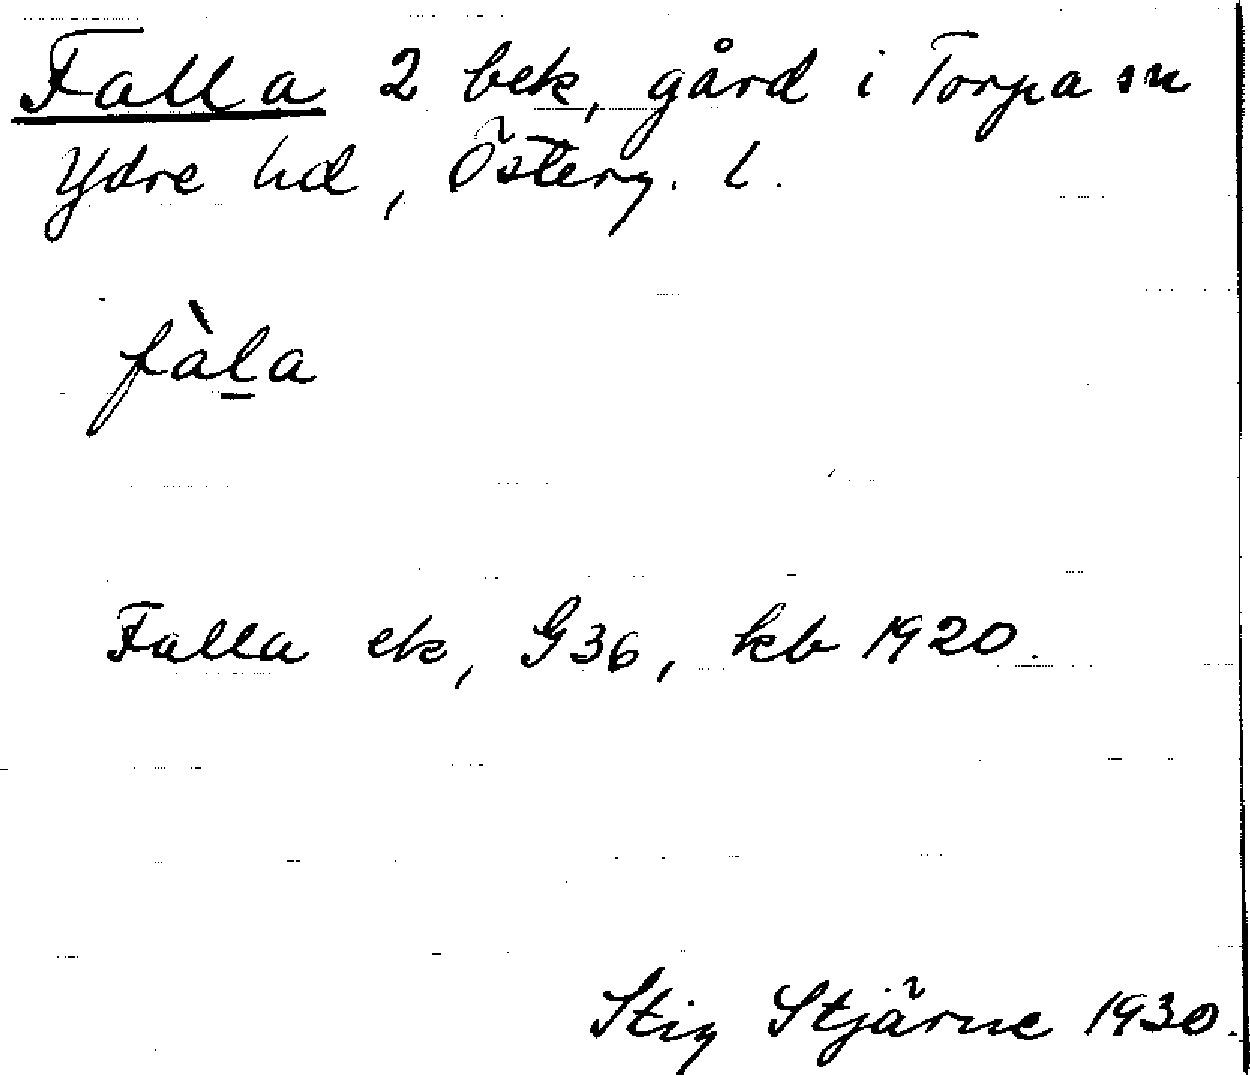 Falla 2 bek, gård i Torpa sn
Ydre hd, Österg. l.
fàl̲a
Falla ek, G36, kb 1920.
Stig Stjärne 1930.